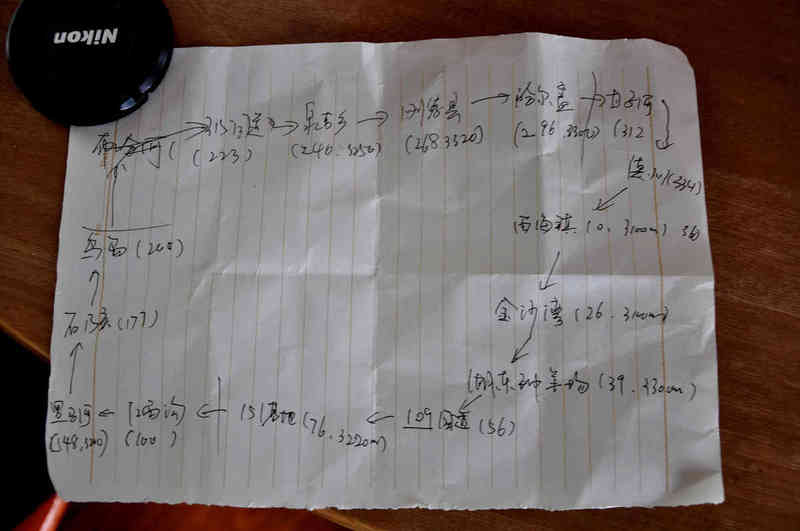 Nikon
315国道 → 泉吉乡 → 刚察县 → 哈尔盖 → 甘子河
(223) (240.3250) (268.3320) (296.3300) (312
(334)
西海镇 (0.3100m)
鸟岛 (200)
金沙湾 (26.3100m)
石乃亥 (177)
湖东种羊场 (39.3300m)
黑马河 ← 江西沟 ← 151基地 (76.3220m) ← 109国道 (56)
(148.3200) (100)